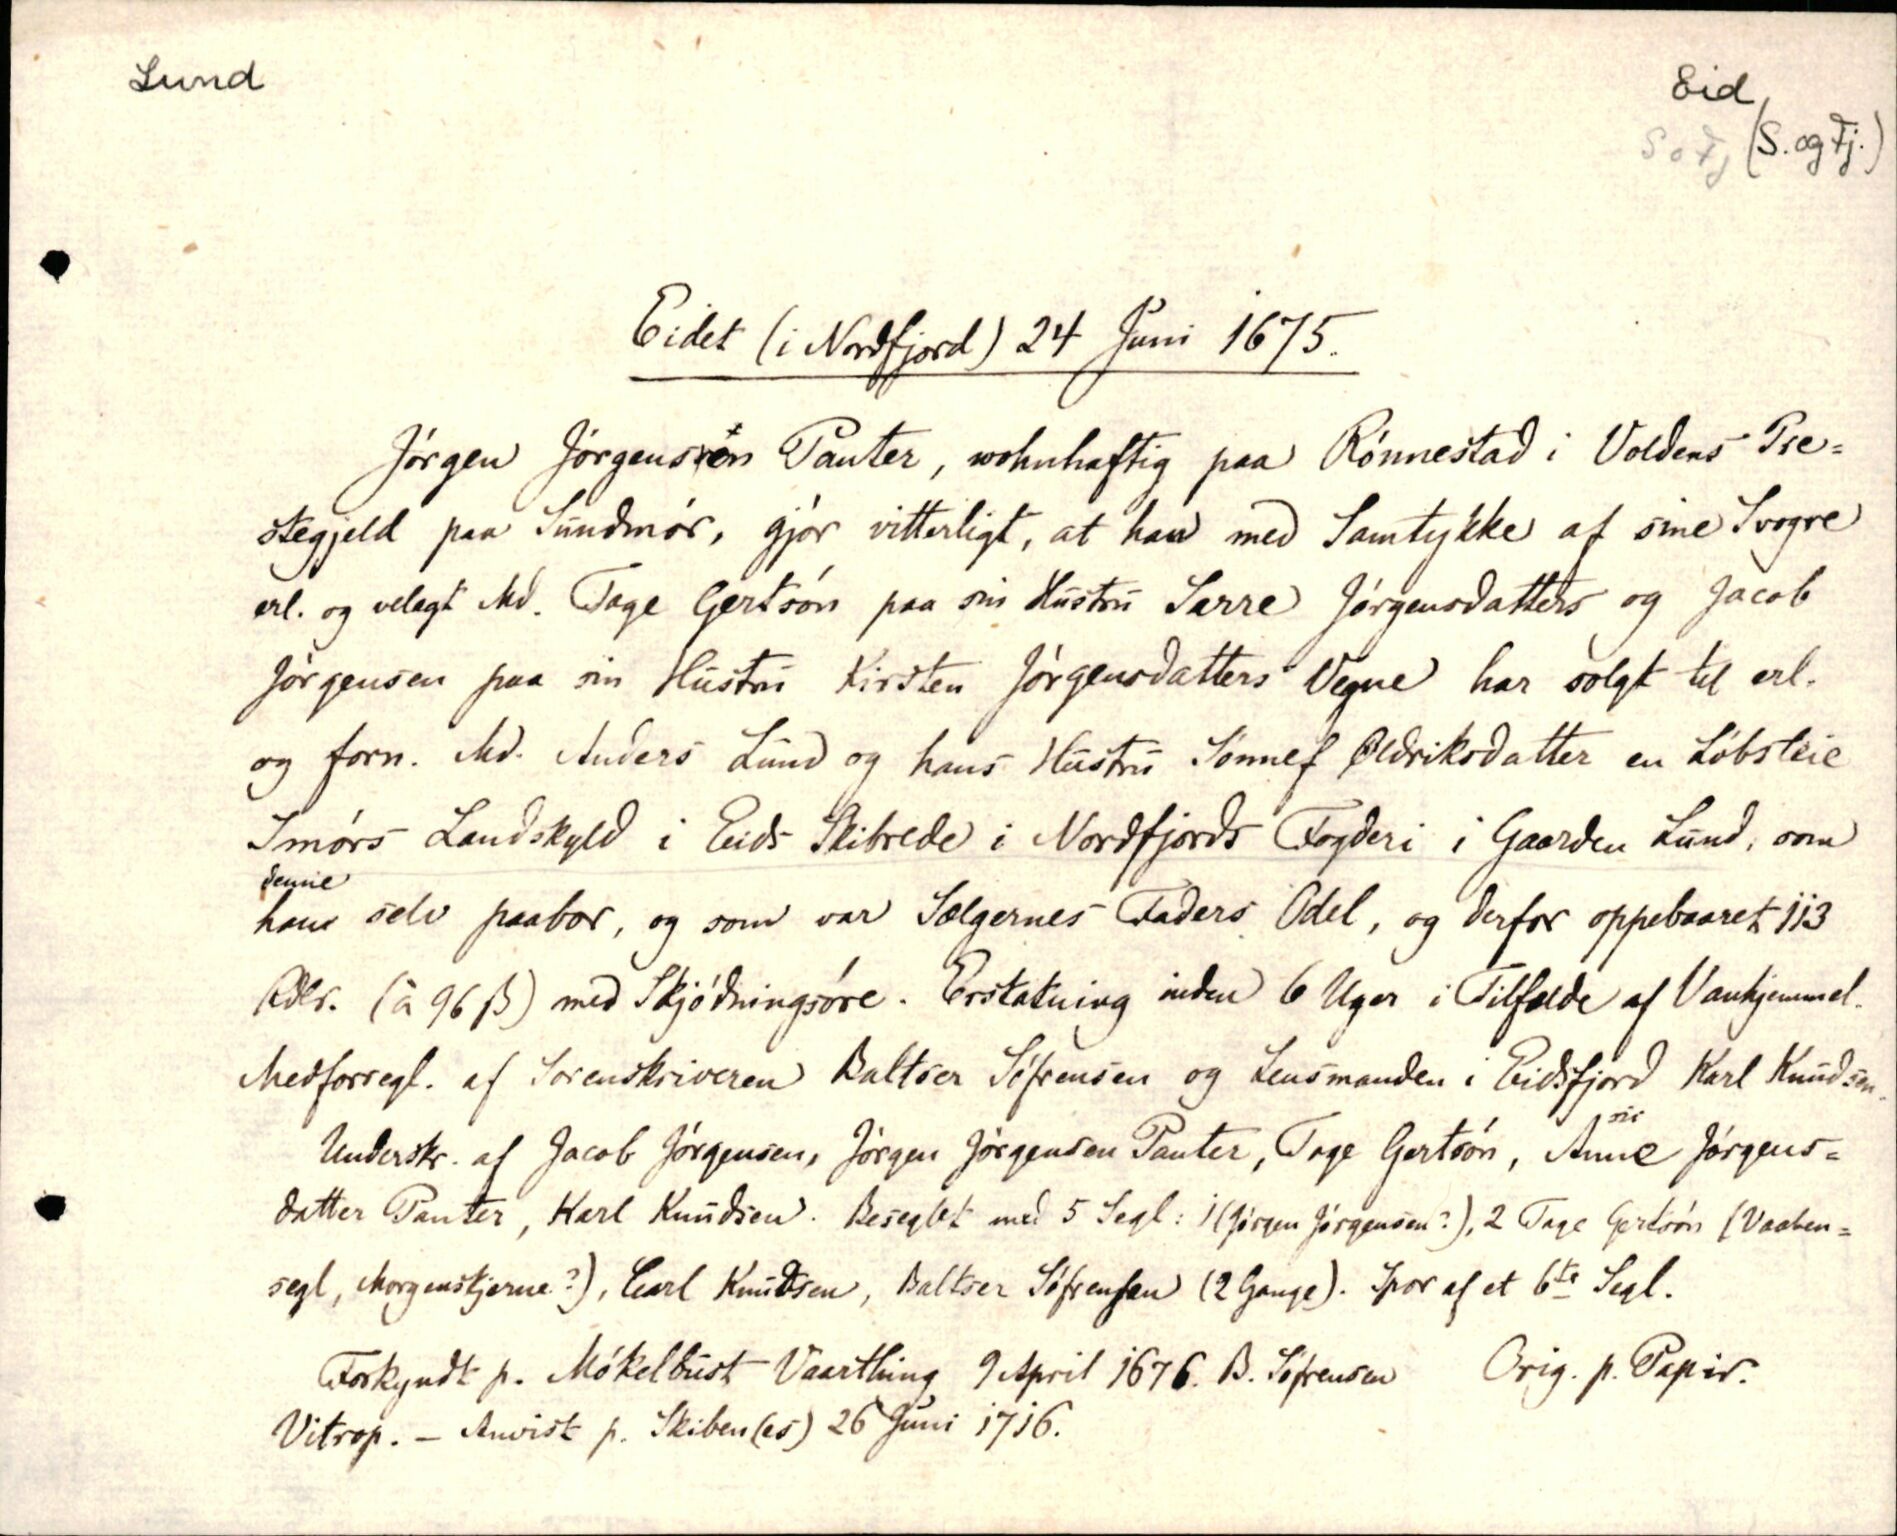 Lund
Eid
S o Fj (S. og Fj.)
Eidet (i Nordfjord) 24 Juni 1675.
Jörgen Jörgensen Panter, wohnhaftig paa Rönnestad i Voldens Pre=
stegjeld paa Sundmör, gjör vitterligt, at han med Samtykke af sine Svogre
erl. og velagt Md. Tage Gertsön paa sin Hustru Sarre Jörgensdatters og Jacob
Jörgensen paa sin Hustru Kirsten Jörgensdatters Vegne har solgt til erl.
og forn. Md. Anders Lund og hans Hustru Sönnef Oldriksdatter en Löbsleie
Smörs Landskyld i Eids Skibrede i Nordfjords Fogderi i Gaarden Lund, som
denne
han selv paabor, og som var Sælgernes Faders Odel, og derfor oppebaaret 113
Rdlr. (à 96 ß) med Skjödningsöre. Erstatning inden 6 Uger i Tilfælde af Vanhjemmel.
Medforsegl. af Sorenskriveren Baltser Söfrensen og Lensmanden i Eidsfjord Karl Knudsen.
Underskr. af Jacob Jörgensen, Jörgen Jörgensen Panter, Tage Gertsön, Anne sic Jörgens=
datter Panter, Karl Knudsen. Beseglet med 5 Segl: 1 (Jörgen Jörgensen?), 2 Tage Gertsön (Vaaben=
segl, Morgenstjerne?), Carl Knudsen, Baltser Söfrensen (2 Gange). Spor af et 6te Segl.
Forkyndt p. Mökelbust Vaarthing 9 April 1676. B. Söfrensen Orig. p. Papir.
Vitrop. – Anvist p. Skiben(es) 26 Juni 1716.